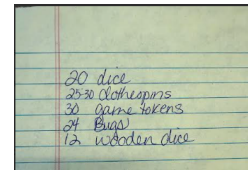 20 dice
25-30 Clothespins
30 game tokens
24 Bugs
12 wooden dice